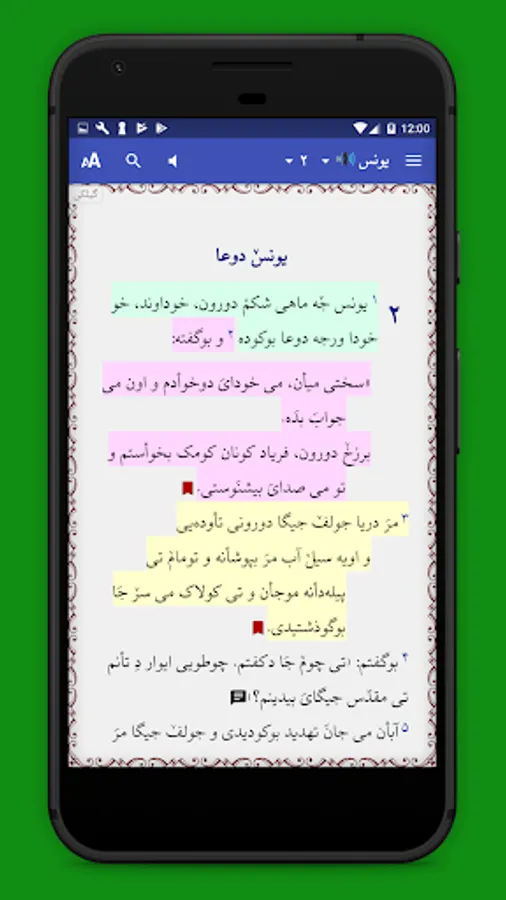 12:00
AA یونس ۲
گیلکی
یونسˇ دوعا
۲
۱ یونس جٚه ماهی شکمˇ دورون، خوداوند، خو
خودا ورجه دوعا بوکوده ۲ و بوگفته:
«سختی میأن، می خودایَ دوخوأدم و اون می
جوابَ بدَه.
برزخˇ دورون، فریاد کونان کومک بخوأستم و
تو می صدایَ بیشنَوستی.
۳ مرَ دریا جولفˇ جیگا دورونی تأوده‌یی
و اویه سیلˇ آب مرَ بپوشأنه و تومامˇ تی
پیله‌دأنه موجأن و تی کولاک می سرˇ جَا
بوگوذشتیدی.
۴ بوگفتم: ‹تی چومˇ جَا دکفتم. چوطویی ایوار دِ تأنم
تی مقدّس جیگایَ بیدینم؟›
۵ آبأن می جانَ تهدید بوکودیدی و جولفˇ جیگا مرَ